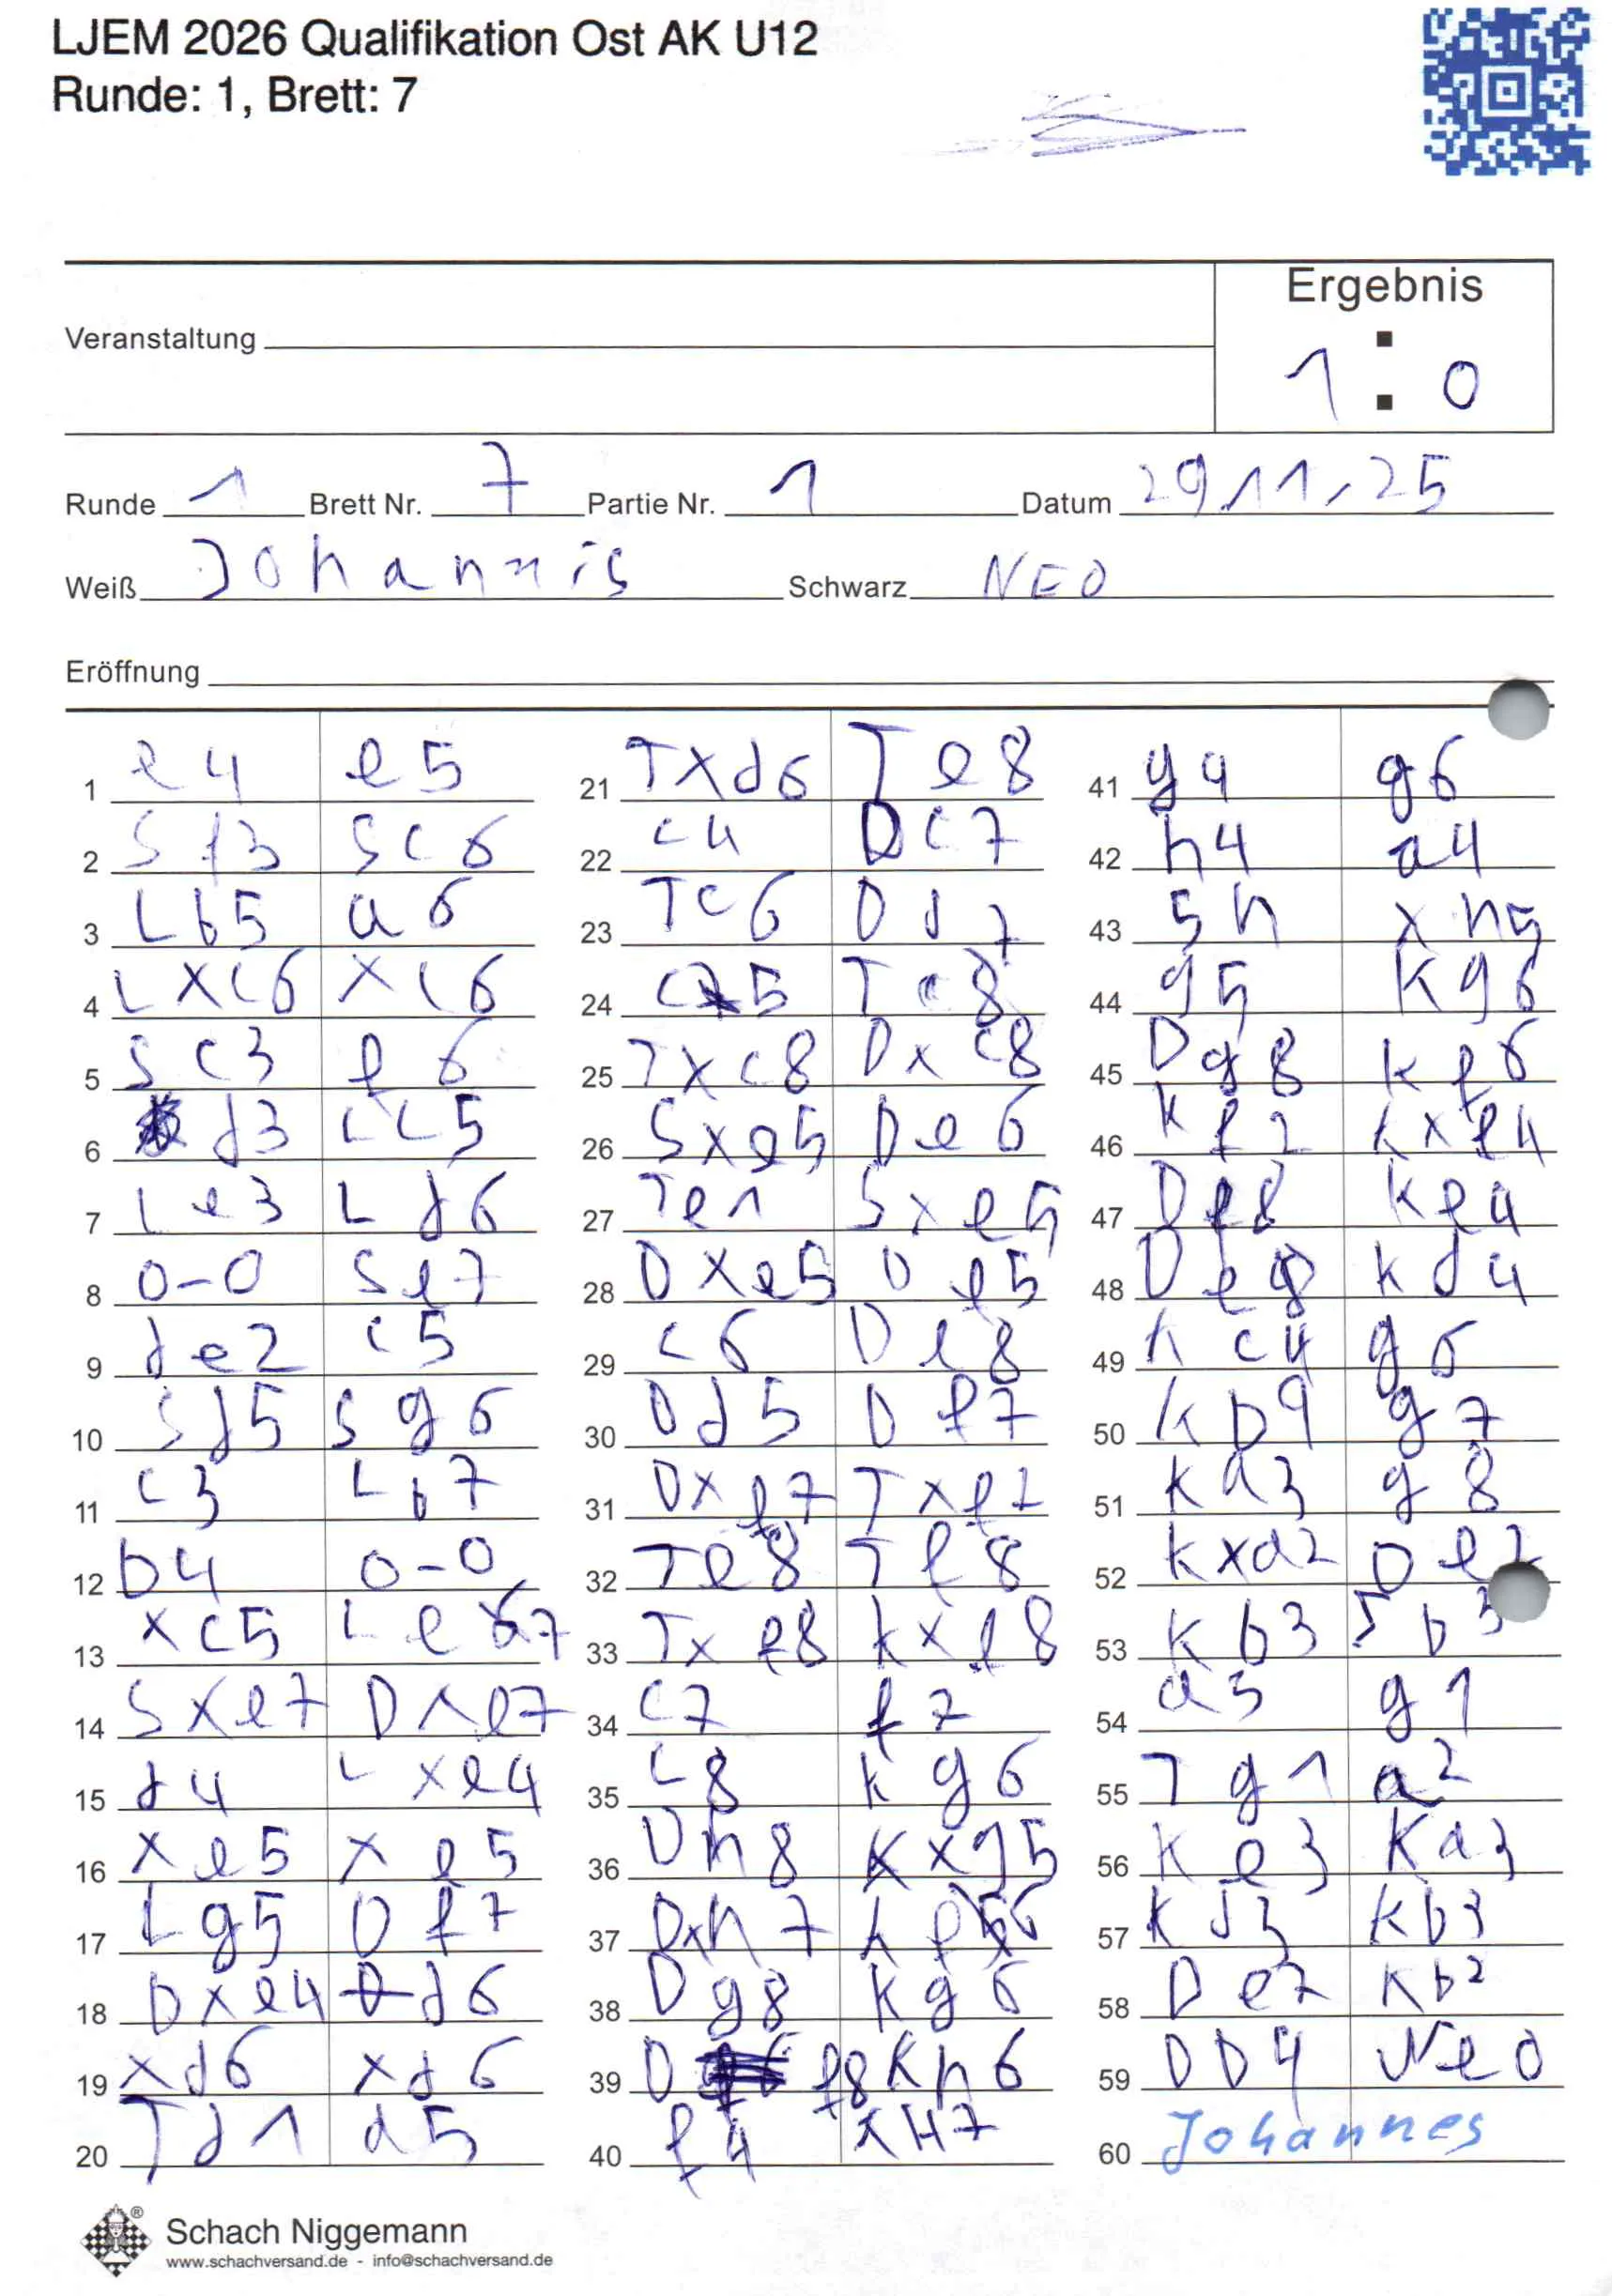 LJEM 2026 Qualifikation Ost AK U12
Runde: 1, Brett: 7
Ergebnis
Veranstaltung
1 : 0
Runde 1 Brett Nr. 7 Partie Nr. 1 Datum 29.11.25
Weiß Johannis Schwarz NEO
Eröffnung
1 e4 e5
2 Sf3 Sc6
3 Lb5 a6
4 Lxc6 xc6
5 Sc3 f6
6 d3 Lc5
7 Le3 Ld6
8 0-0 Se7
9 de2 c5
10 Sd5 Sg6
11 c3 Lb7
12 b4 0-0
13 xc5 Le7
14 Sxe7 Dxe7
15 d4 Lxe4
16 xe5 xe5
17 Lg5 Df7
18 Dxe4 d6
19 xd6 xd6
20 Td1 a5
21 Txd6 Te8
22 c4 Dc7
23 Tc6 Dd7
24 c5 Tc8
25 Txc8 Dxc8
26 Sxe5 De6
27 Te1 Sxe5
28 Dxe5 De5
29 c6 De8
30 Dd5 Df7
31 Dxf7 Txf7
32 Te8 Tf8
33 Txf8 kxf8
34 c7 f7
35 c8 kg6
36 Dh8 Kxg5
37 Dxh7 kf6
38 Dg8 kg6
39 D f8 Kh6
40 f4 KH7
41 g4 g6
42 h4 a4
43 5h xh5
44 g5 Kg6
45 Dg8 kf6
46 kf2 kxf4
47 De8 Kf4
48 De8 kd4
49 Kc4 g6
50 Kb4 g7
51 Ka3 g8
52 kxa2 De2
53 Kb3 5b3
54 a3 g1
55 Tg1 a2
56 Ke3 Ka3
57 kd3 Kb3
58 De2 Kb2
59 Db4 Neo
60 Johannes
Schach Niggemann
®
www.schachversand.de - info@schachversand.de